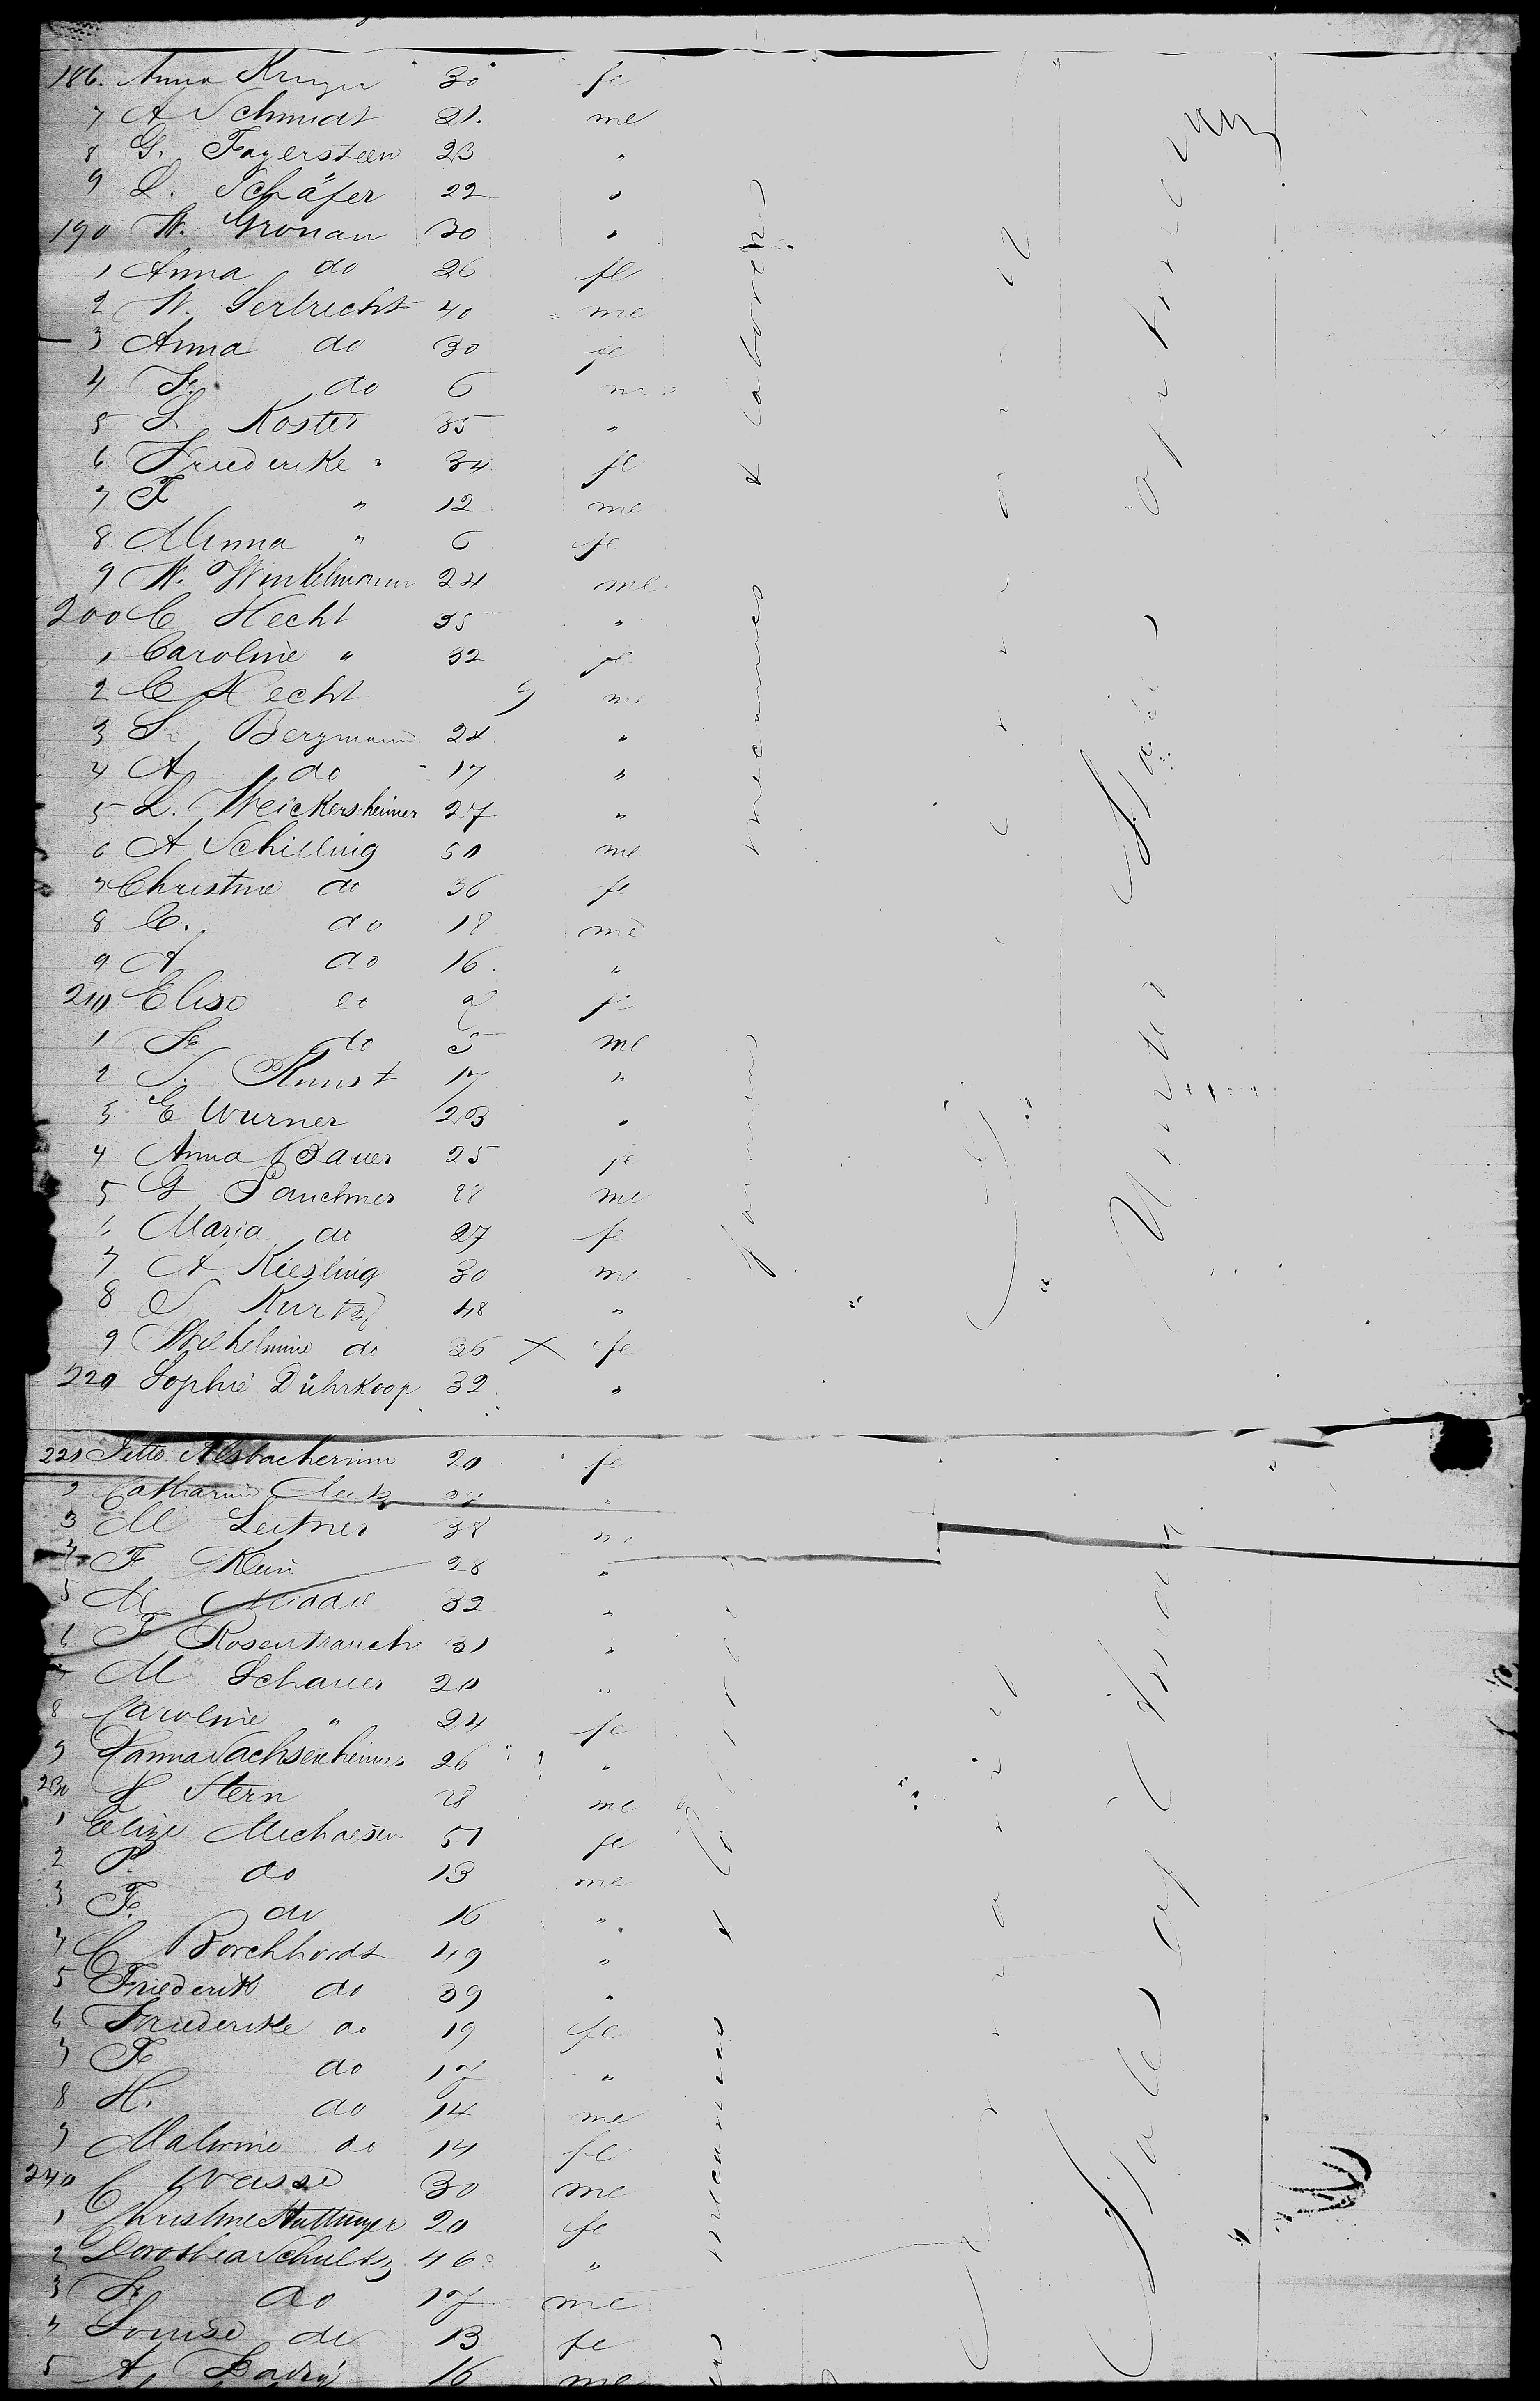 186. Anna Kruger 30 fe
7 A Schmidt 21. me
8 G. Fayersteen 23 "
9 L. Schäfer 22 "
190 W. Gronau 30 "
1 Anna do 26 fe
2 W. Serbrecht 40 me
3 Anna do 30 fe
4 Fr. do 6 me
5 L Koster 35 "
6 Friederike " 34 fe
7 F " 12 me
8 Minna " 6 fe
9 W. Winkelmann 24 me
200 C Hecht 35 "
1 Caroline " 32 fe
2 C Hecht 9 me
3 Bergmann 24 "
4 A do 17 "
5 L. Weickersheimer 27 "
6 A Schilling 50 me
7 Christine do 36 fe
8 C. do 18 me
9 A do 16. "
210 Elise do fe
1 Fr do 5 me
2 S. Kunst 17 "
3 E Wurner 23 "
4 Anna Bauer 25 fe
5 G 28 me
6 Maria do 27 fe
7 A Kiesling 30 me
8 S Kurtz 48 "
9 Wilhelmine do 26 X fe
220 Sophie Dührkoop 32 "
221 Jette 20 fe
2 Catharine "
3 M Leitner 38 me
4 F Klein 28 "
5 M 32 "
6 F Rosentrauch 31 "
7 M Schauer 20 "
8 Caroline " 24 fe
9 Hanna Sachsenheimer 26 "
230 Stern 28 me
1 Elize Michaelsen 51 fe
2 P. do 13 me
3 F. do 16 "
4 C Borchhardt 49 "
5 Friederik do 39 "
6 Friederike do 19 fe
7 F do 17 "
8 H. do 14 me
9 Malwine do 14 fe
240 C Wasse 30 me
1 Christine 20 fe
2 Dorothea Schultz 46 "
3 Fr do 17 me
4 Louise do 13 fe
5 A, 16 me
farmers mecanics & laborers
Germany
United States of America
mecanics & laborers
States of America